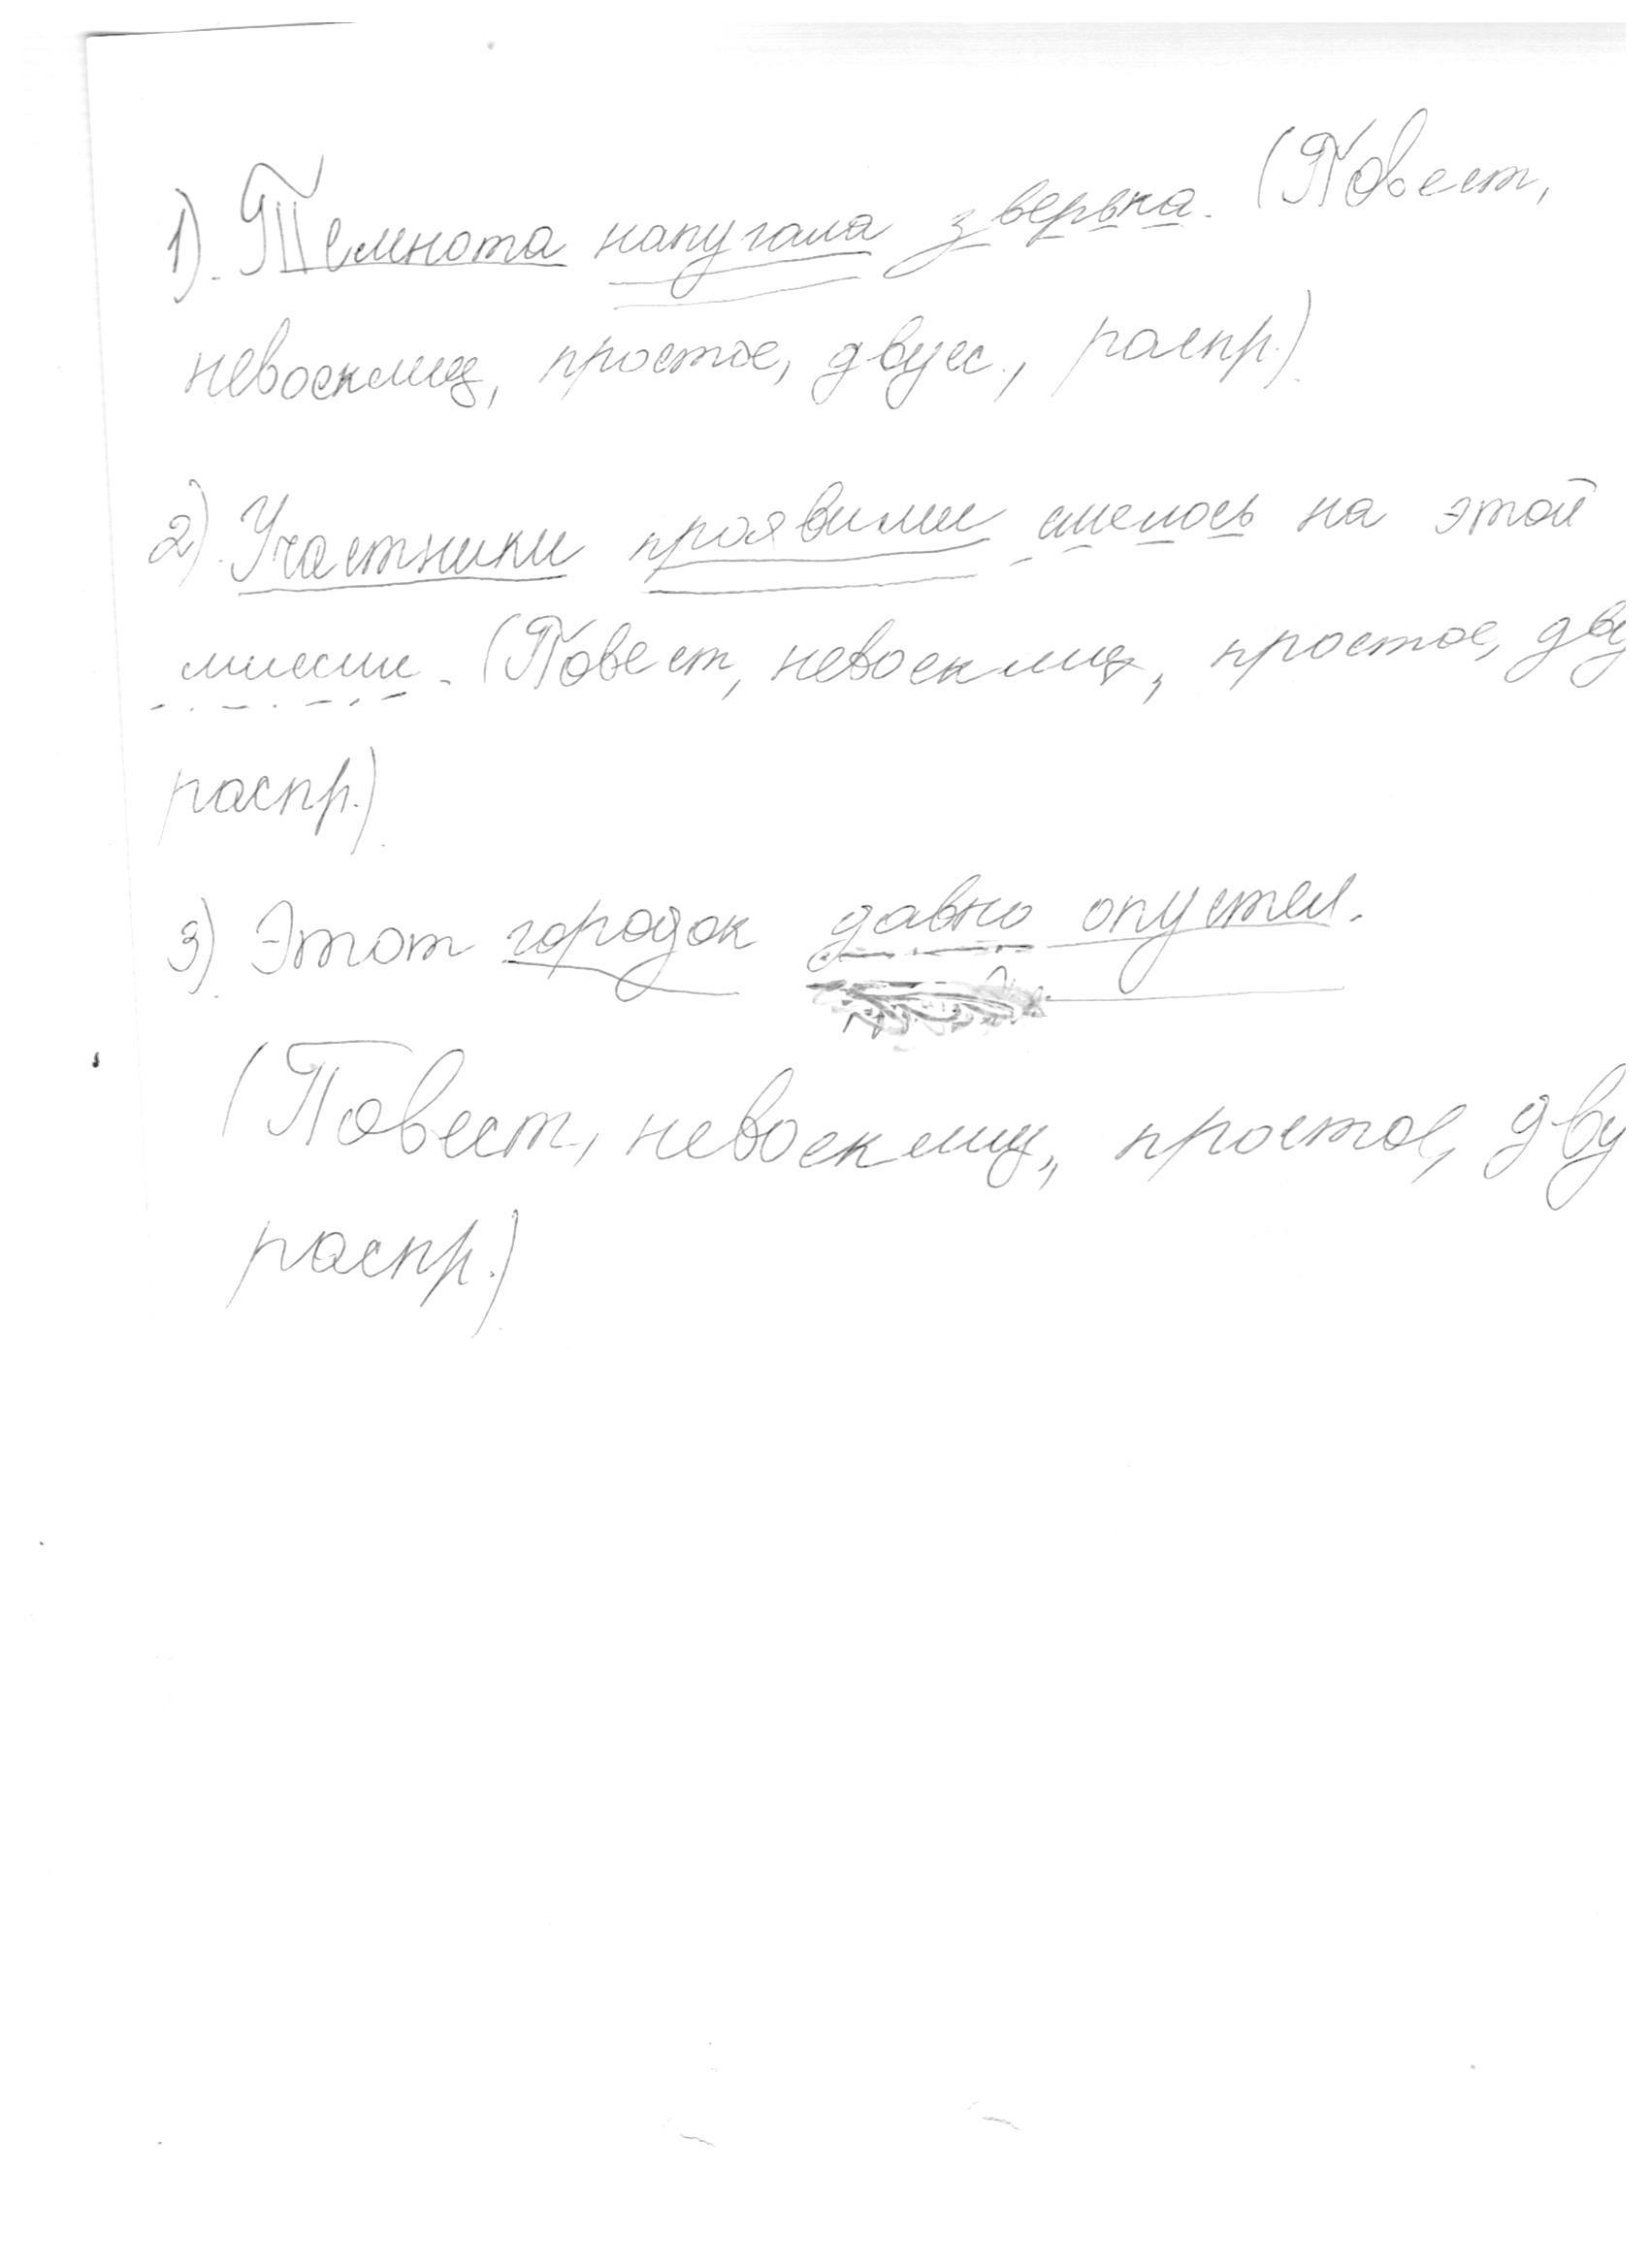 1). Темнота напугала зверька. (Повест,
невосклиц, простое, двусс., распр.)
2). Участники проявили смелось на этой
миссии. (Повест, невосклиц, простое, дву
распр.)
3) Этот городок давно опустел.
(Повест, невосклиц., простое, дву
распр.)